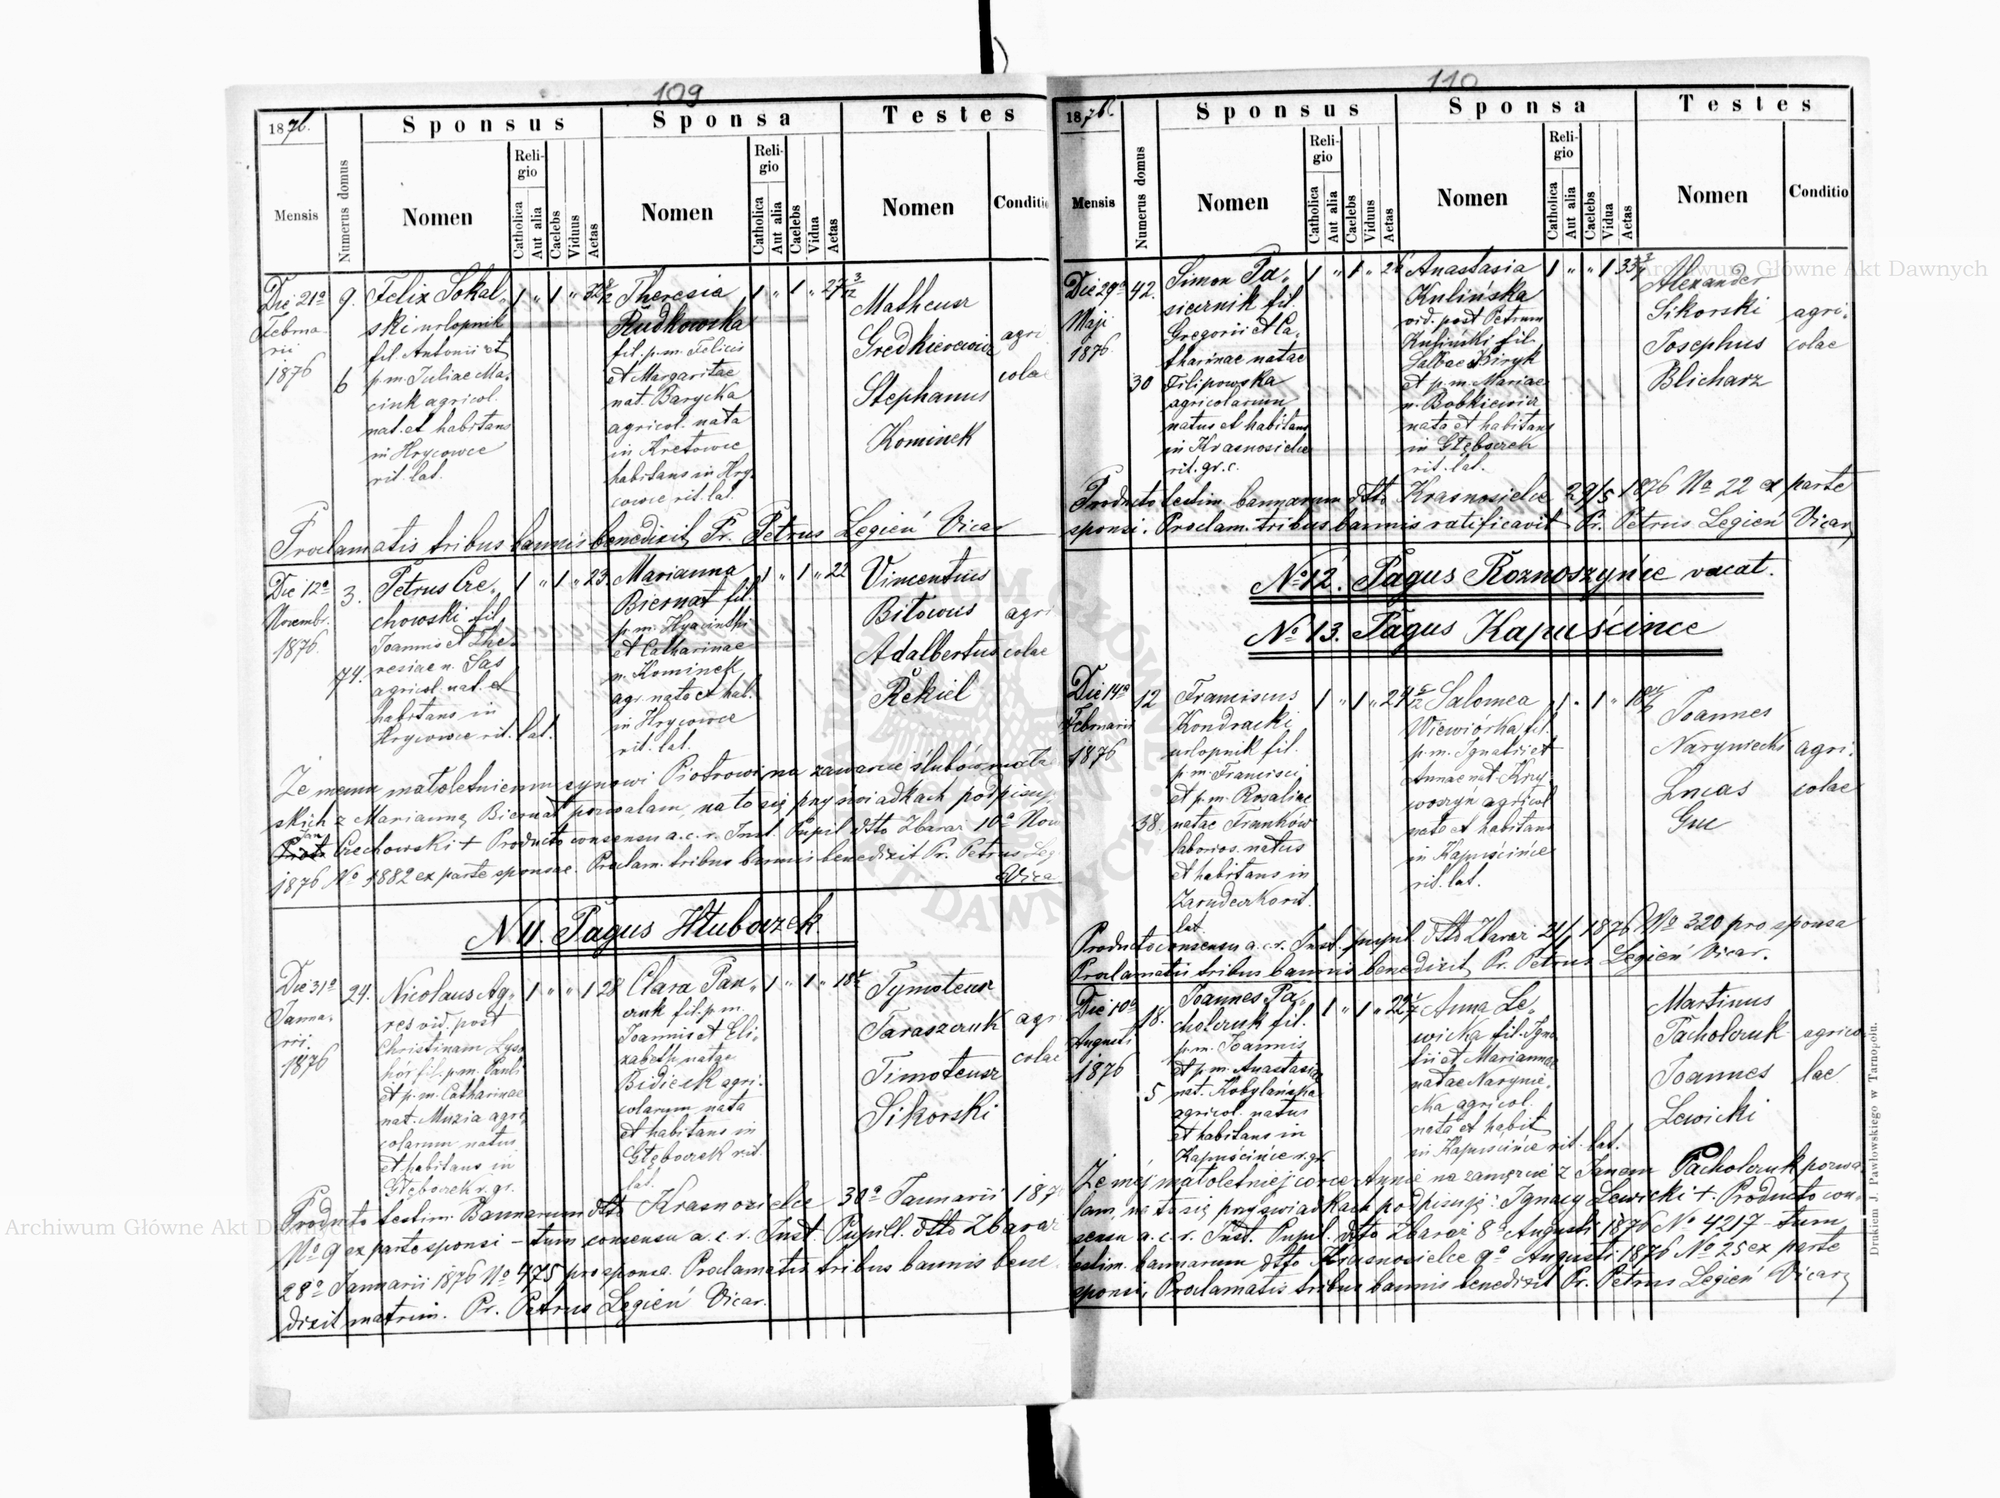 109
1876.
Sponsus
Sponsa
Testes
Mensis
Numerus domus
Nomen
Religio
Catholica
Aut alia
Caelebs
Viduus
Aetas
Nomen
Religio
Catholica
Aut alia
Caelebs
Vidua
Aetas
Nomen
Conditio
Die 21a
Februa-
rii
1876
9.
6
Felix Sokal-
ski urlopnik
fil Antonii et
p.m. Juliae Ma-
cink agricol.
nat. et habitans
in Hrycowce
rit. lat.
1 " 1 "
Theresia
Rudkowska
fil. p.m. Felicis
et Margaritae
nat. Barycka
agricol. nata
in Kretowce
habitans in Hry-
cowce rit. lat.
1 " 1 " 27 3/12
Matheusz
Gredkiewicz
Stephanus
Kominek
agri
colae
Proclamatis tribus bannis benedixit Pr. Petrus Legień Vicar
Die 12a
Novembr.
1876
3.
74.
Petrus Cze-
chowski fil
Joannis et The-
resiae n. Sas
agricol. nat. et
habitans in
Hrycowce rit. lat.
1 " 1 " 23
Marianna
Biernat fil.
p.m. Hyacinthi
et Catharinae
n. Kominek
agr. nata et hab.
in Hrycowce
rit. lat.
1 " 1 " 22
Vincentius
Bitowus
Adalbertus
Rekiel
agri
colae
Że memu małoletniemu synowi Piotrowi na zawarcie ślubów małż
skich z Marianną Biernat pozwalam, na to się przy świadkach podpisuję
Jan Czechowski + Producto consensu a.c.r. Inst. Pupil dtto Zbaraz 10a Nov
1876 No 4882 ex parte sponsae. Proclam. tribus bannis benedixit Pr. Petrus Leg
Vica
N 11. Pagus Hłuboczek
Die 31a
Janua-
rii.
1876
24.
Nicolaus Ag-
res vid. post
Christinam Lyso
hór fil. p.m. Pauli
et p.m. Catharinae
nat. Muzia agri-
colarum natus
et habitans in
Głęboczek r. gr.
1 " " 1 28
Clara Pan-
czuk fil. p.m.
Joannis et Eli-
zabeth natae
Bidiuk agri-
colarum nata
et habitans in
Głęboczek rit.
lat.
1 " 1 "
Tymoteusz
Taraszczuk
Timoteusz
Sikorski
agri
colae
Producto testim. Bannarum dtto Krasnosielce 30a Januarii 187
No 9 ex parte sponsi – tum consensu a.c.r. Inst. Pupill. dtto Zbaraz
28a Januarii 1876 No 475 pro sponsa. Proclamatis tribus bannis bene
dixit matrim. Pr. Petrus Legień Vicar.
110
1876.
Sponsus
Sponsa
Testes
Mensis
Numerus domus
Nomen
Religio
Catholica
Aut alia
Caelebs
Viduus
Aetas
Nomen
Religio
Catholica
Aut alia
Caelebs
Vidua
Aetas
Nomen
Conditio
Die 29a
Maji
1876
42.
30
Simon Pa-
siecznik fil.
Gregorii et Ca-
tharinae natae
Filipowska
agricolarum
natus et habitans
in Krasnosielce
rit. gr. c.
1 " 1 " 26
Anastasia
Kulińska
vid. post Petrum
Kuliński fil.
Salbae Kiryk
et p.m. Mariae
n. Bobkiewicz
nata et habitans
in Głęboczek
rit. lat.
1 " " 1
Alexander
Sikorski
Josephus
Blicharz
agri-
colae
Producto testim. bannarum dtto Krasnosielce 29/5 1876 No 22 ex parte
sponsi. Proclam. tribus bannis ratificavit Pr. Petrus Legień Vicar
No 12. Pagus Roznoszyńce vacat.
No 13. Pagus Kapuścince
Die 14a
Februarii
1876
12
38.
Franciscus
Kondracki
urlopnik fil.
p.m. Francisci
et p.m. Rosaliae
natae Franków
laborios. natus
et habitans in
Zarudeczko rit.
lat.
1 " 1 "
Salomea
Wiewiórka fil.
p.m. Ignatii et
Annae nat. Kry-
woszyń agricol
nata et habitans
in Kapuścińce
rit. lat.
1 " 1 "
Joannes
Naryniecki
Lucas
Guc
agri-
colae
Producto consensu a.c.r. Inst. pupil. dtto Zbaraz 21/1 1876 No 320 pro sponsa
Proclamatis tribus bannis benedixit Pr. Petrus Legień Vicar.
Die 10a
Augusti
1876
18.
5
Joannes Pa-
cholczuk fil.
p.m. Joannis
et p.m. Anastasiae
nat. Kobylańska
agricol. natus
et habitans in
Kapuścińce r. gr.
1 " 1 "
Anna Le-
wicka fil. Igna-
tii et Mariannae
natae Narynie-
cka agricol.
nata et habit
in Kapuścińce rit. lat.
Martinus
Pacholczuk
Joannes
Lewicki
agrico
lae
Że mej małoletniej córce Annie na zamęzcie z Janem Pacholczuk pozwa-
lam, na to się przy świadkach podpisuję: Ignacy Lewicki + Producto con-
sensu a.c.r. Inst. Pupil. dtto Zbaraz 8a Augusti 1876 No 4217 – tum
testim. bannarum dtto Krasnosielce 9a Augusti 1876 No 25 ex parte
sponsi, Proclamatis tribus bannis benedixit Pr. Petrus Legień Vicar
Drukiem J. Pawłowskiego w Tarnopolu.
Archiwum Główne Akt Dawnych
Archiwum Główne Akt Dawnych